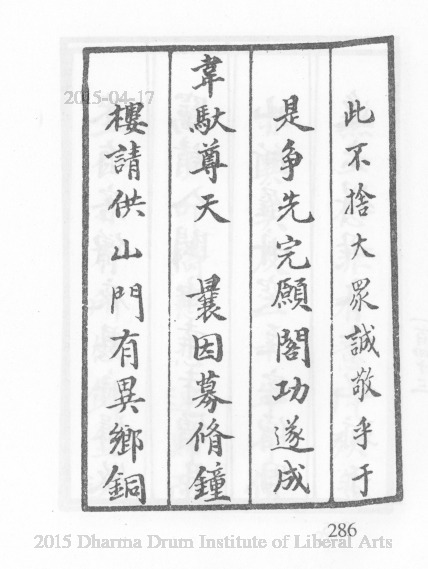 此不捨大眾誠敬乎于
是争先完願閣功遂成
韋馱尊天 曩因募脩鐘
樓請供山門有異鄉銅
286
2015-04-17
2015 Dharma Drum Institute of Liberal Arts